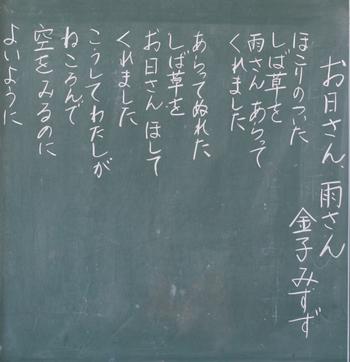 お日さん、雨さん
金子みすず
ほこりのついた
しば草を
雨さん あらって
くれました
あらってぬれた
しば草を
お日さん ほして
くれました
こうしてわたしが
ねころんで
空をみるのに
よいように